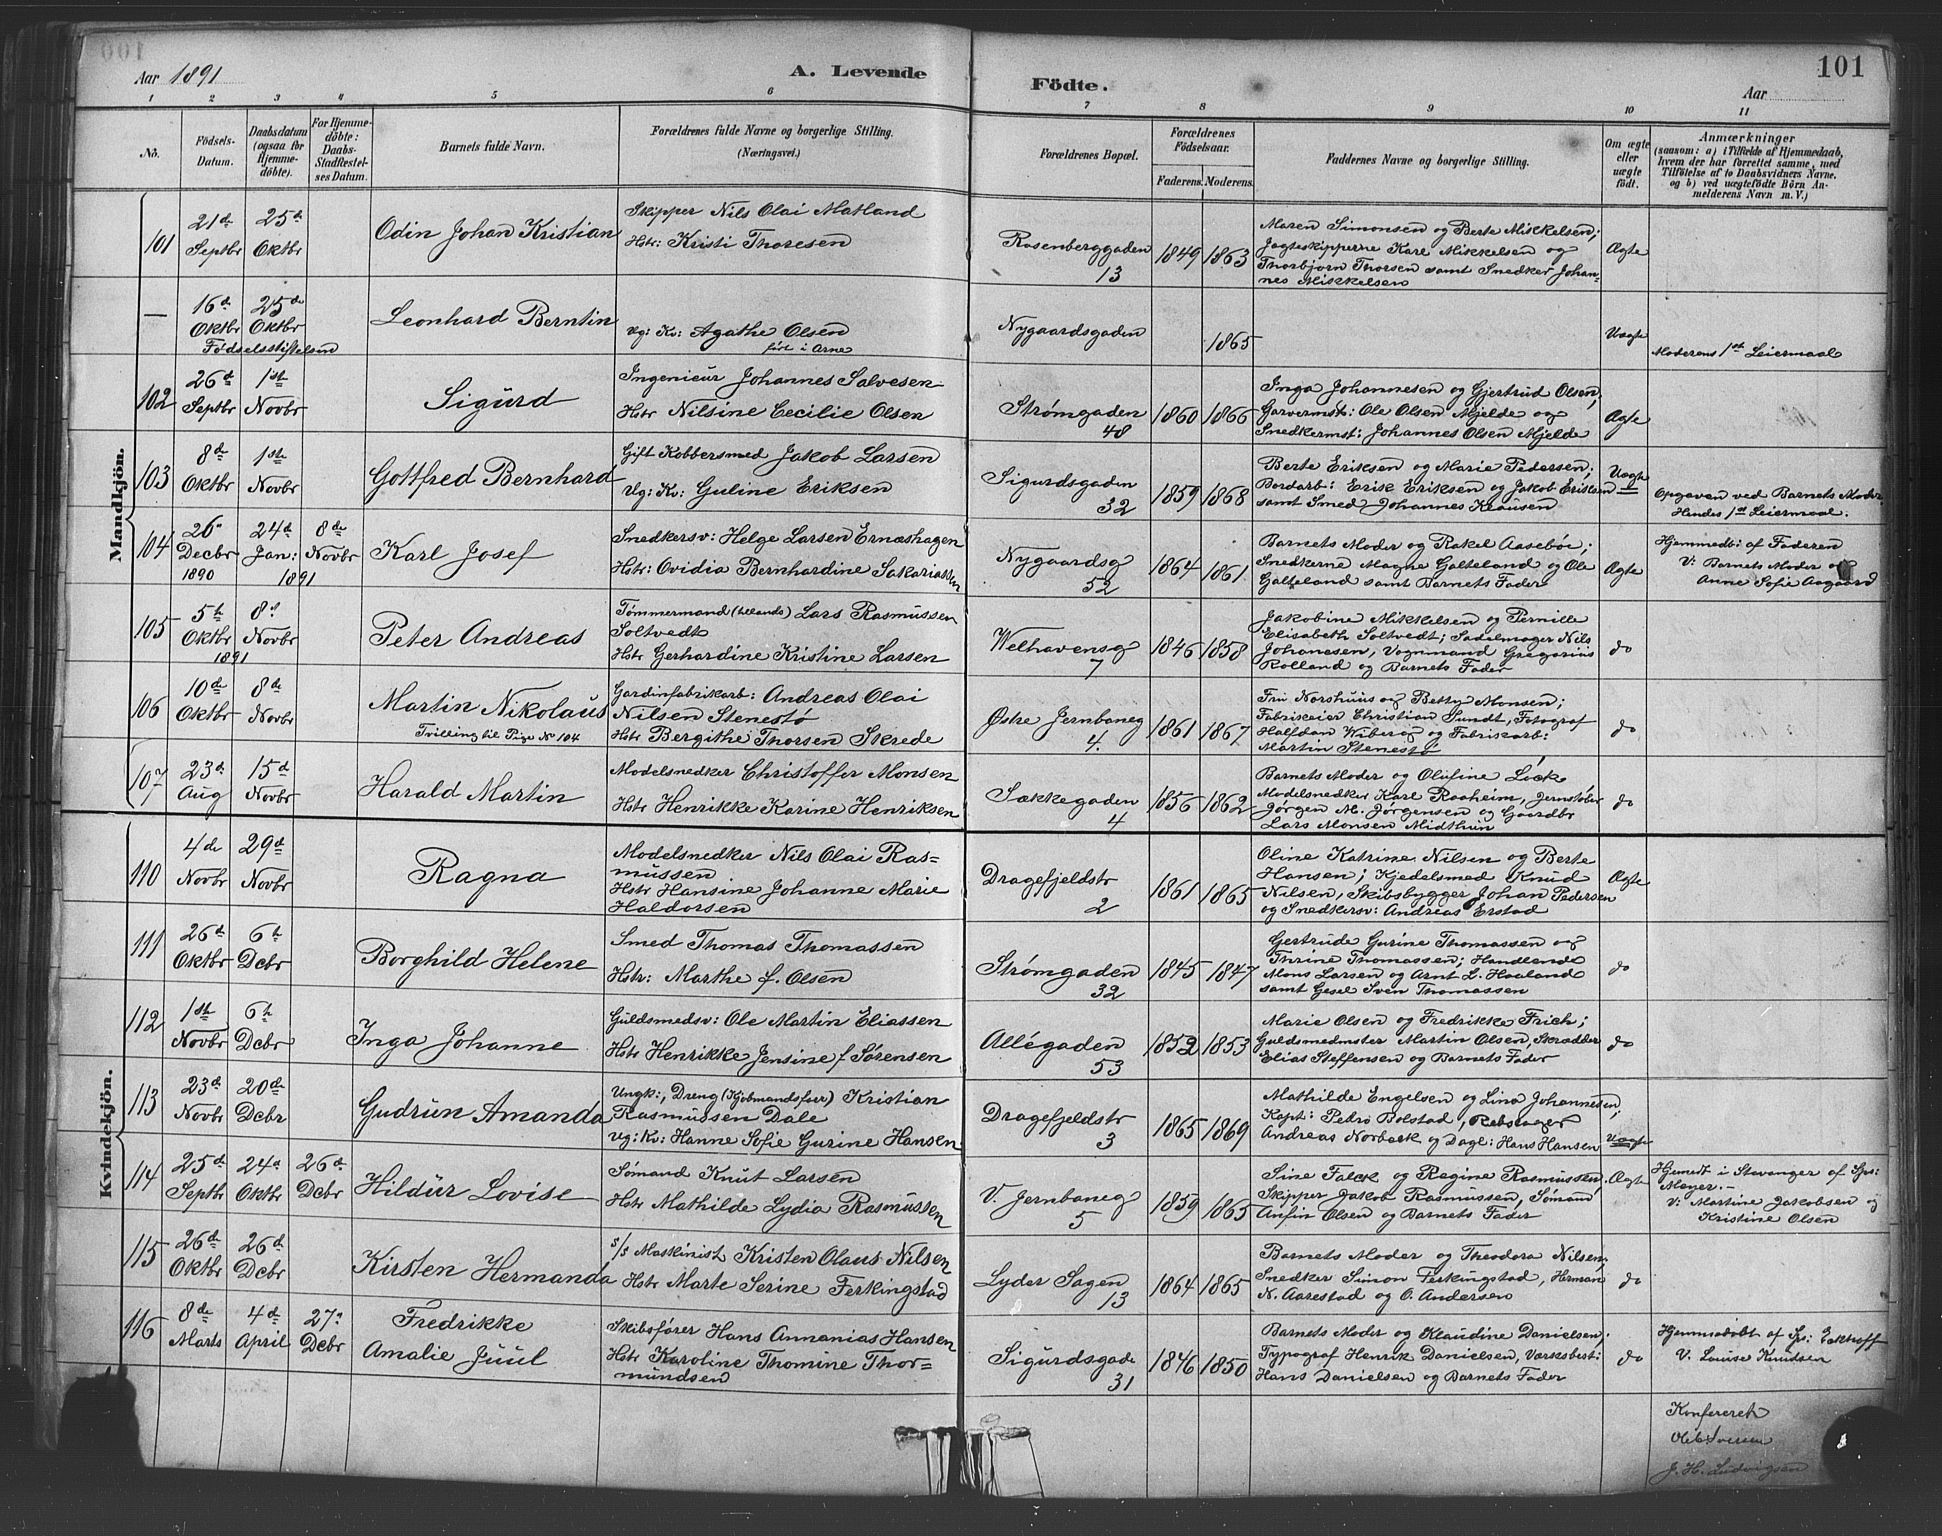 101
Aar 1891
A. Levende
Födte.
Aar
1 2 3 4 5 6 7 8 9 10 11
No.
Födsels-Datum.
Daabsdatum (ogsaa for Hjemme-döbte).
For Hjemme-döbte: Daabs-Stadfæstel-ses Datum.
Barnets fulde Navn.
Forældrenes fulde Navne og borgerlige Stilling.
(Næringsvei.)
Forældrenes Bopæl.
Forældrenes Födselsaar.
Faderens. Moderens.
Faddernes Navne og borgerlige Stilling.
Om ægte eller uægte födt.
Anmærkninger
(saasom: a) i Tilfælde af Hjemmedaab, hvem der har forrettet samme, med Tilföielse af to Daabsvidners Navne. og b) ved uægtefödte Börn An-melderens Navn m. V.)
Mandkjön.
101
21de Septbr
25de Oktbr
Odin Johan Kristian
Skipper Nils Olai Matland
Hstr: Kristi Thoresen
Rosenberggaden
13
1849 1863
Maren Simonsen og Berte Mikkelsen;
Jagteskipperne Kare Mikkelsen og
Thorbjorn Thorsen samt Snedker Johan-
nes Mikkelsen
Ægte
—
16de Oktbr
25de Oktbr
Fødselsstiftelsen
Leonhard Berntin
Ug: Kv: Agathe Olsen
født i Arne
Nygaardsgaden
1865
Uægte
Moderens 1st Leiermaal
102
26de Septbr
1ste Novbr
Sigurd
Ingenieur Johannes Salvesen
Hstr Nilsine Cecilie Olsen
Strømgaden
48
1860 1866
Inga Johannesen og Gjertrud Olsen,
Garvermst: Ole Olsen Mjelde og
Snedkermst: Johannes Olsen Mjelde
Ægte
103
8de Oktbr
1ste Novbr
Gottfred Bernhard
Gift Kobbersmed Jakob Larsen
Ug: Kv: Guline Eriksen
Sigurdsgaden
32
1859 1868
Berte Eriksen og Marie Pedersen;
Bordarb: Erik Eriksen og Jakob Eriksen
samt Smed Johannes Klausen
Uægte
Opgaven ved Barnets Moder
Hendes 1st Leiermaal.
104
26de Decbr 1890
24de Jan: 1891
8de Novbr
Karl Josef
Snedkersv: Helge Larsen Ernæshagen
Hstr: Ovidia Bernhardine Sakariassen
Nygaardsg
52
1864 1861
Barnets Moder og Rakel Aasebøe;
Snedkerne Magne Galteland og Ole
Galteland samt Barnets Fader
Ægte
Hjemmedb: af Faderen
V: Barnets Moder og
Anne Sofie Aagaard
105
5te Oktbr 1891
8de Novbr
Peter Andreas
Tømmermand (tillands) Lars Rasmussen
Soltvedt
Hstr Gerhardine Kristine Larsen
Welhavensg
7
1846 1858
Jakobine Mikkelsen og Pernille
Elisabeth Soltvedt; Sadelmager Nils
Johanesen, Vognmand Gregorius
Rolland og Barnets Fader
do
106
10de Oktbr
8de Novbr
Martin Nikolaus
Tvilling til Pige No 104
Gardinfabrikarb: Andreas Olai
Nilsen Stenestø
Hstr Bergithe Thorsen Skrede
Østre Jernbaneg
4.
1861 1867
Fru Norshuus og Betty Monsen;
Fabrikeier Christian Sundt, Fotograf
Halfdan Wiberg og Fabrikarb:
Martin Stenestø
do
107
23de Aug
15de Novbr
Harald Martin
Modelsnedker Christoffer Monsen
Hstr Henrikke Karine Henriksen
Sækkegaden
4
1856 1862
Barnets Moder og Olufine Loek
Modelsnedker Karl Raaheim, Jernstøber
Jørgen M. Jørgensen og Gaardbr
Lars Monsen Midthun
do
Kvindekjön.
110
4de Novbr
29de Novbr
Ragna
Modelsnedker Nils Olai Ras-
mussen
Hstr Hansine Johanne Marie
Haldorsen
Dragefjeldstr
2
1861 1865
Oline Katrine Nilsen og Berte
Hansen; Kjedelsmed Knud
Nilsen, Skibsbygger Johan Pedersen
og Snedkersv: Andreas Erstad
Ægte
111
26de Oktbr
6te Dcbr
Borghild Helene
Smed Thomas Thomassen
Hstr: Marthe f. Olsen
Strømgaden
32
1845 1847
Gertrude Gurine Thomassen og
Thrine Thomassen; Handlende
Mons Larsen og Arnt L. Haaland
samt Gesel Sven Thomassen
do
112
1ste Novbr
6te Dcbr
Inga Johanne
Guldsmedsv: Ole Martin Eliassen
Hstr Henrikke Jensine f Sørensen
Allégaden
53
1852 1853
Marie Olsen og Fredrikke Frich;
Guldsmedmster Martin Olsen, Skrædder
Elias Steffensen og Barnets Fader
do
113
23de Novbr
20de Dcbr
Gudrun Amanda
Ungk:, Dreng (Kjøbmandsfuer) Kristian
Rasmussen Dale
Ug: Kv: Hanne Sofie Gurine Hansen
Dragefjeldstr
3
1865 1869
Mathilde Engelsen og Lina Johannesen,
Kapt: Petro Bolstad, Rebslager
Andreas Norbæk og Dagl: Hans Hansen
Uægte
114
25de Septbr
24de Oktbr
26de Dcbr
Hildur Lovise
Sømand Knut Larsen
Hstr Mathilde Lydia Rasmussen
V. Jernbaneg
5
1859 1865
Sine Falck og Regine Rasmussen,
Skipper Jakob Rasmussen, Sømand
Anfin Olsen og Barnets Fader
Ægte
Hjemedt i Stavanger af Sps:
Meyer.—
V: Martine Jakobsen og
Kristine Olsen
115
26de Oktbr
26de Dcbr
Kirsten Hermanda
s/s Maskinist Kristen Olaus Nilsen
Hstr Marte Serine Ferkingstad
Lyder Sagen
13
1864 1865
Barnets Moder og Theodora Nilsen,
Snedker Simon Ferkingstad, Herman
N. Aarestad og O. Andersen
do
116
8de Marts
4de April
27de Dcbr
Fredrikke
Amalie Juul
Skibsfører Hans Annanias Hansen
Hstr Karoline Thomine Thor-
mundsen
Sigurdsgade
31
1846 1850
Barnets Moder og Klaudine Danielsen;
Typograf Henrik Danielsen, Værksbest:
Hans Danielsen og Barnets Fader
do
Hjemmedøbt af Sps: Eckhoff
V. Louise Knudsen
Konfereret
J. H. Ludvigsen